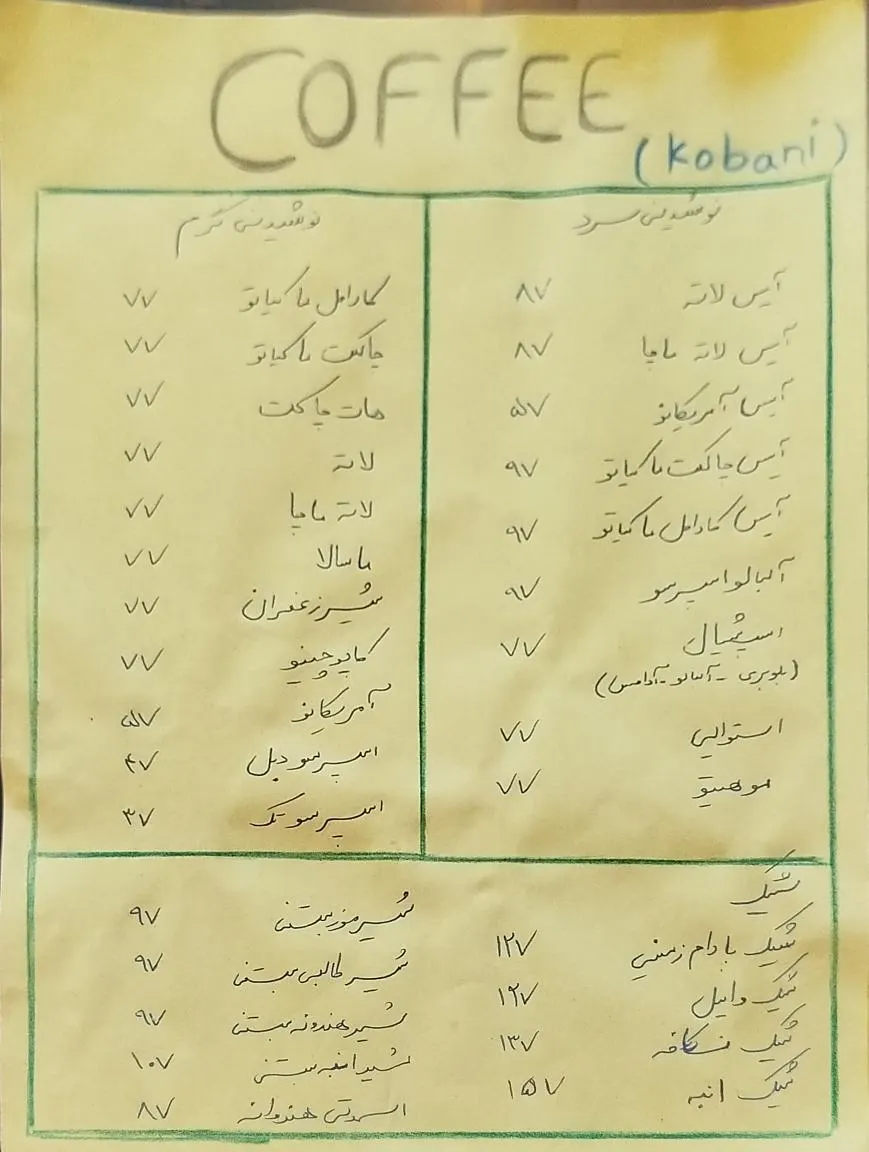 COFFEE
(kobani)
نوشیدنی سرد
آیس لاته ۸۷
آیس لاته ماچا ۸۷
آیس آمریکانو ۵۷
آیس چاکلت ماکیاتو ۹۷
آیس کارامل ماکیاتو ۹۷
آلبالو اسپرسو ۹۷
اسپشیال ۷۷
(بلوبری - آلبالو - آدامس)
استوایی ۷۷
موهیتو ۷۷
نوشیدنی گرم
کارامل ماکیاتو ۷۷
چاکلت ماکیاتو ۷۷
هات چاکلت ۷۷
لاته ۷۷
لاته ماچا ۷۷
ماسالا ۷۷
شیر زعفران ۷۷
کاپوچینو ۷۷
آمریکانو ۵۷
اسپرسو دبل ۴۷
اسپرسو تک ۳۷
شیک
شیک بادام زمینی ۱۲۷
شیک وانیل ۱۲۷
شیک نسکافه ۱۳۷
شیک انبه ۱۵۷
شیر موز بستنی ۹۷
شیر طالبی بستنی ۹۷
شیر هندونه بستنی ۹۷
شیر انبه بستنی ۱۰۷
اسموتی هندوانه ۸۷